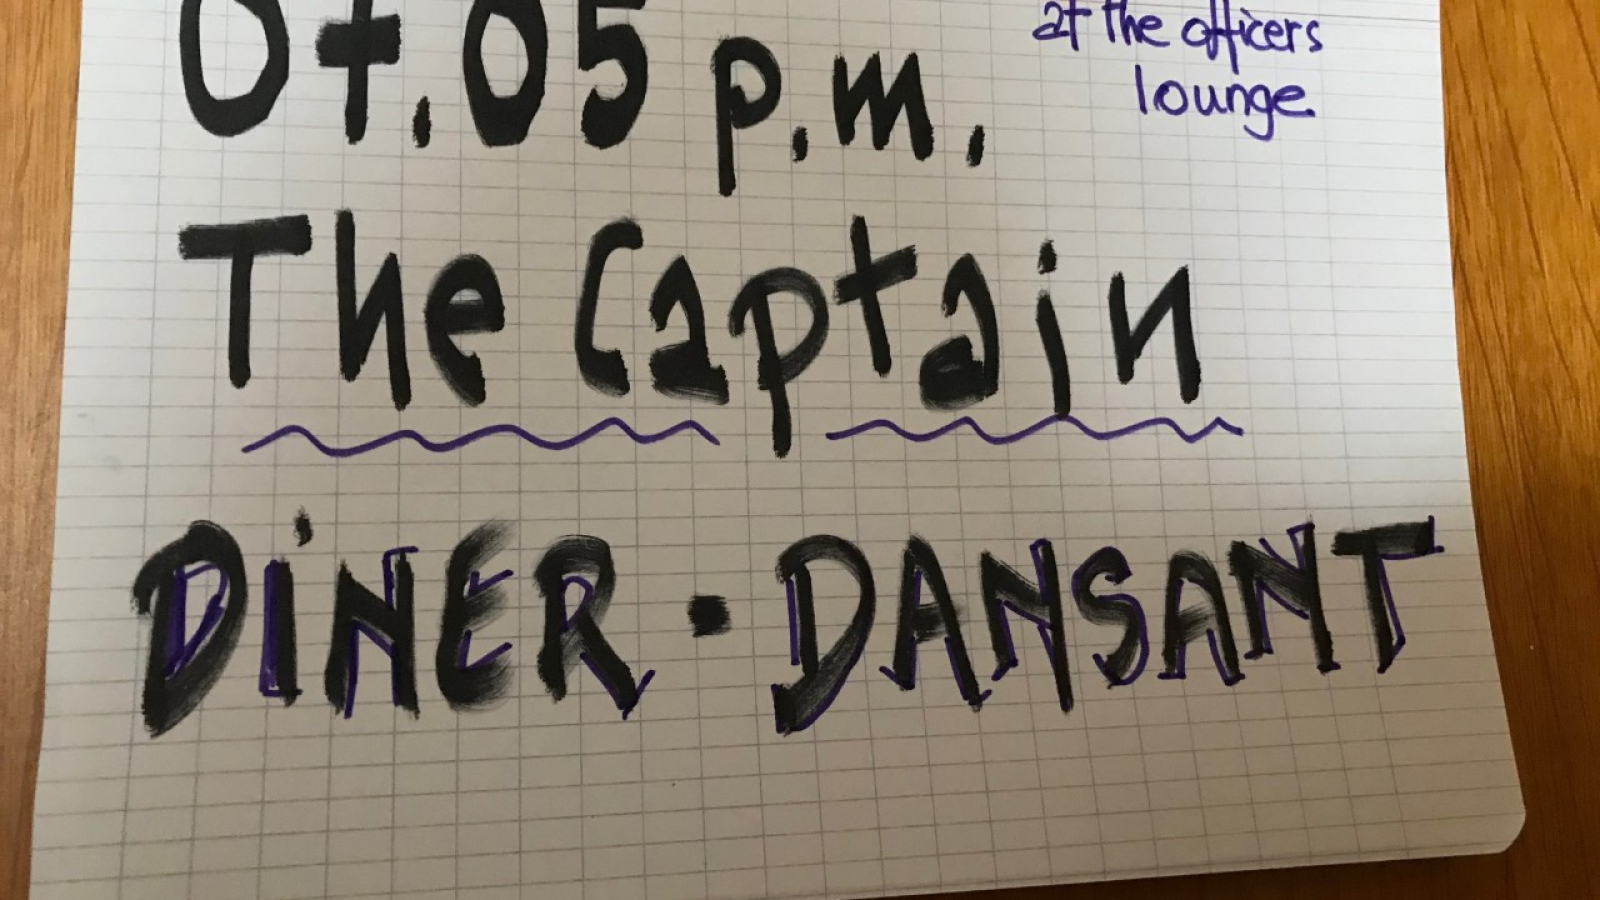 at the officers
lounge.
p.m.
The Captain
DiNER · DANSANT